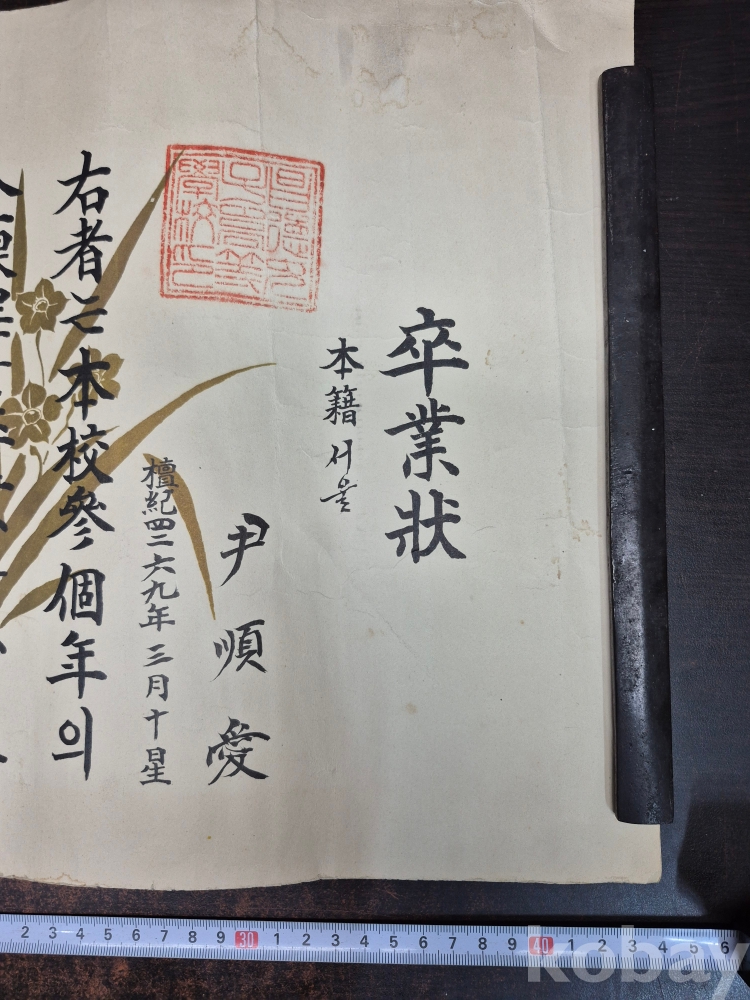 卒業狀
本籍 서울
尹順愛
檀紀四二六九年三月十日生
昌德女
子高等
學校印
右者는 本校參個年의
2 3 4 5 6 7 8 9 30 1 2 3 4 5 6 7 8 9 40 1 2 3 4 5 6
kobay